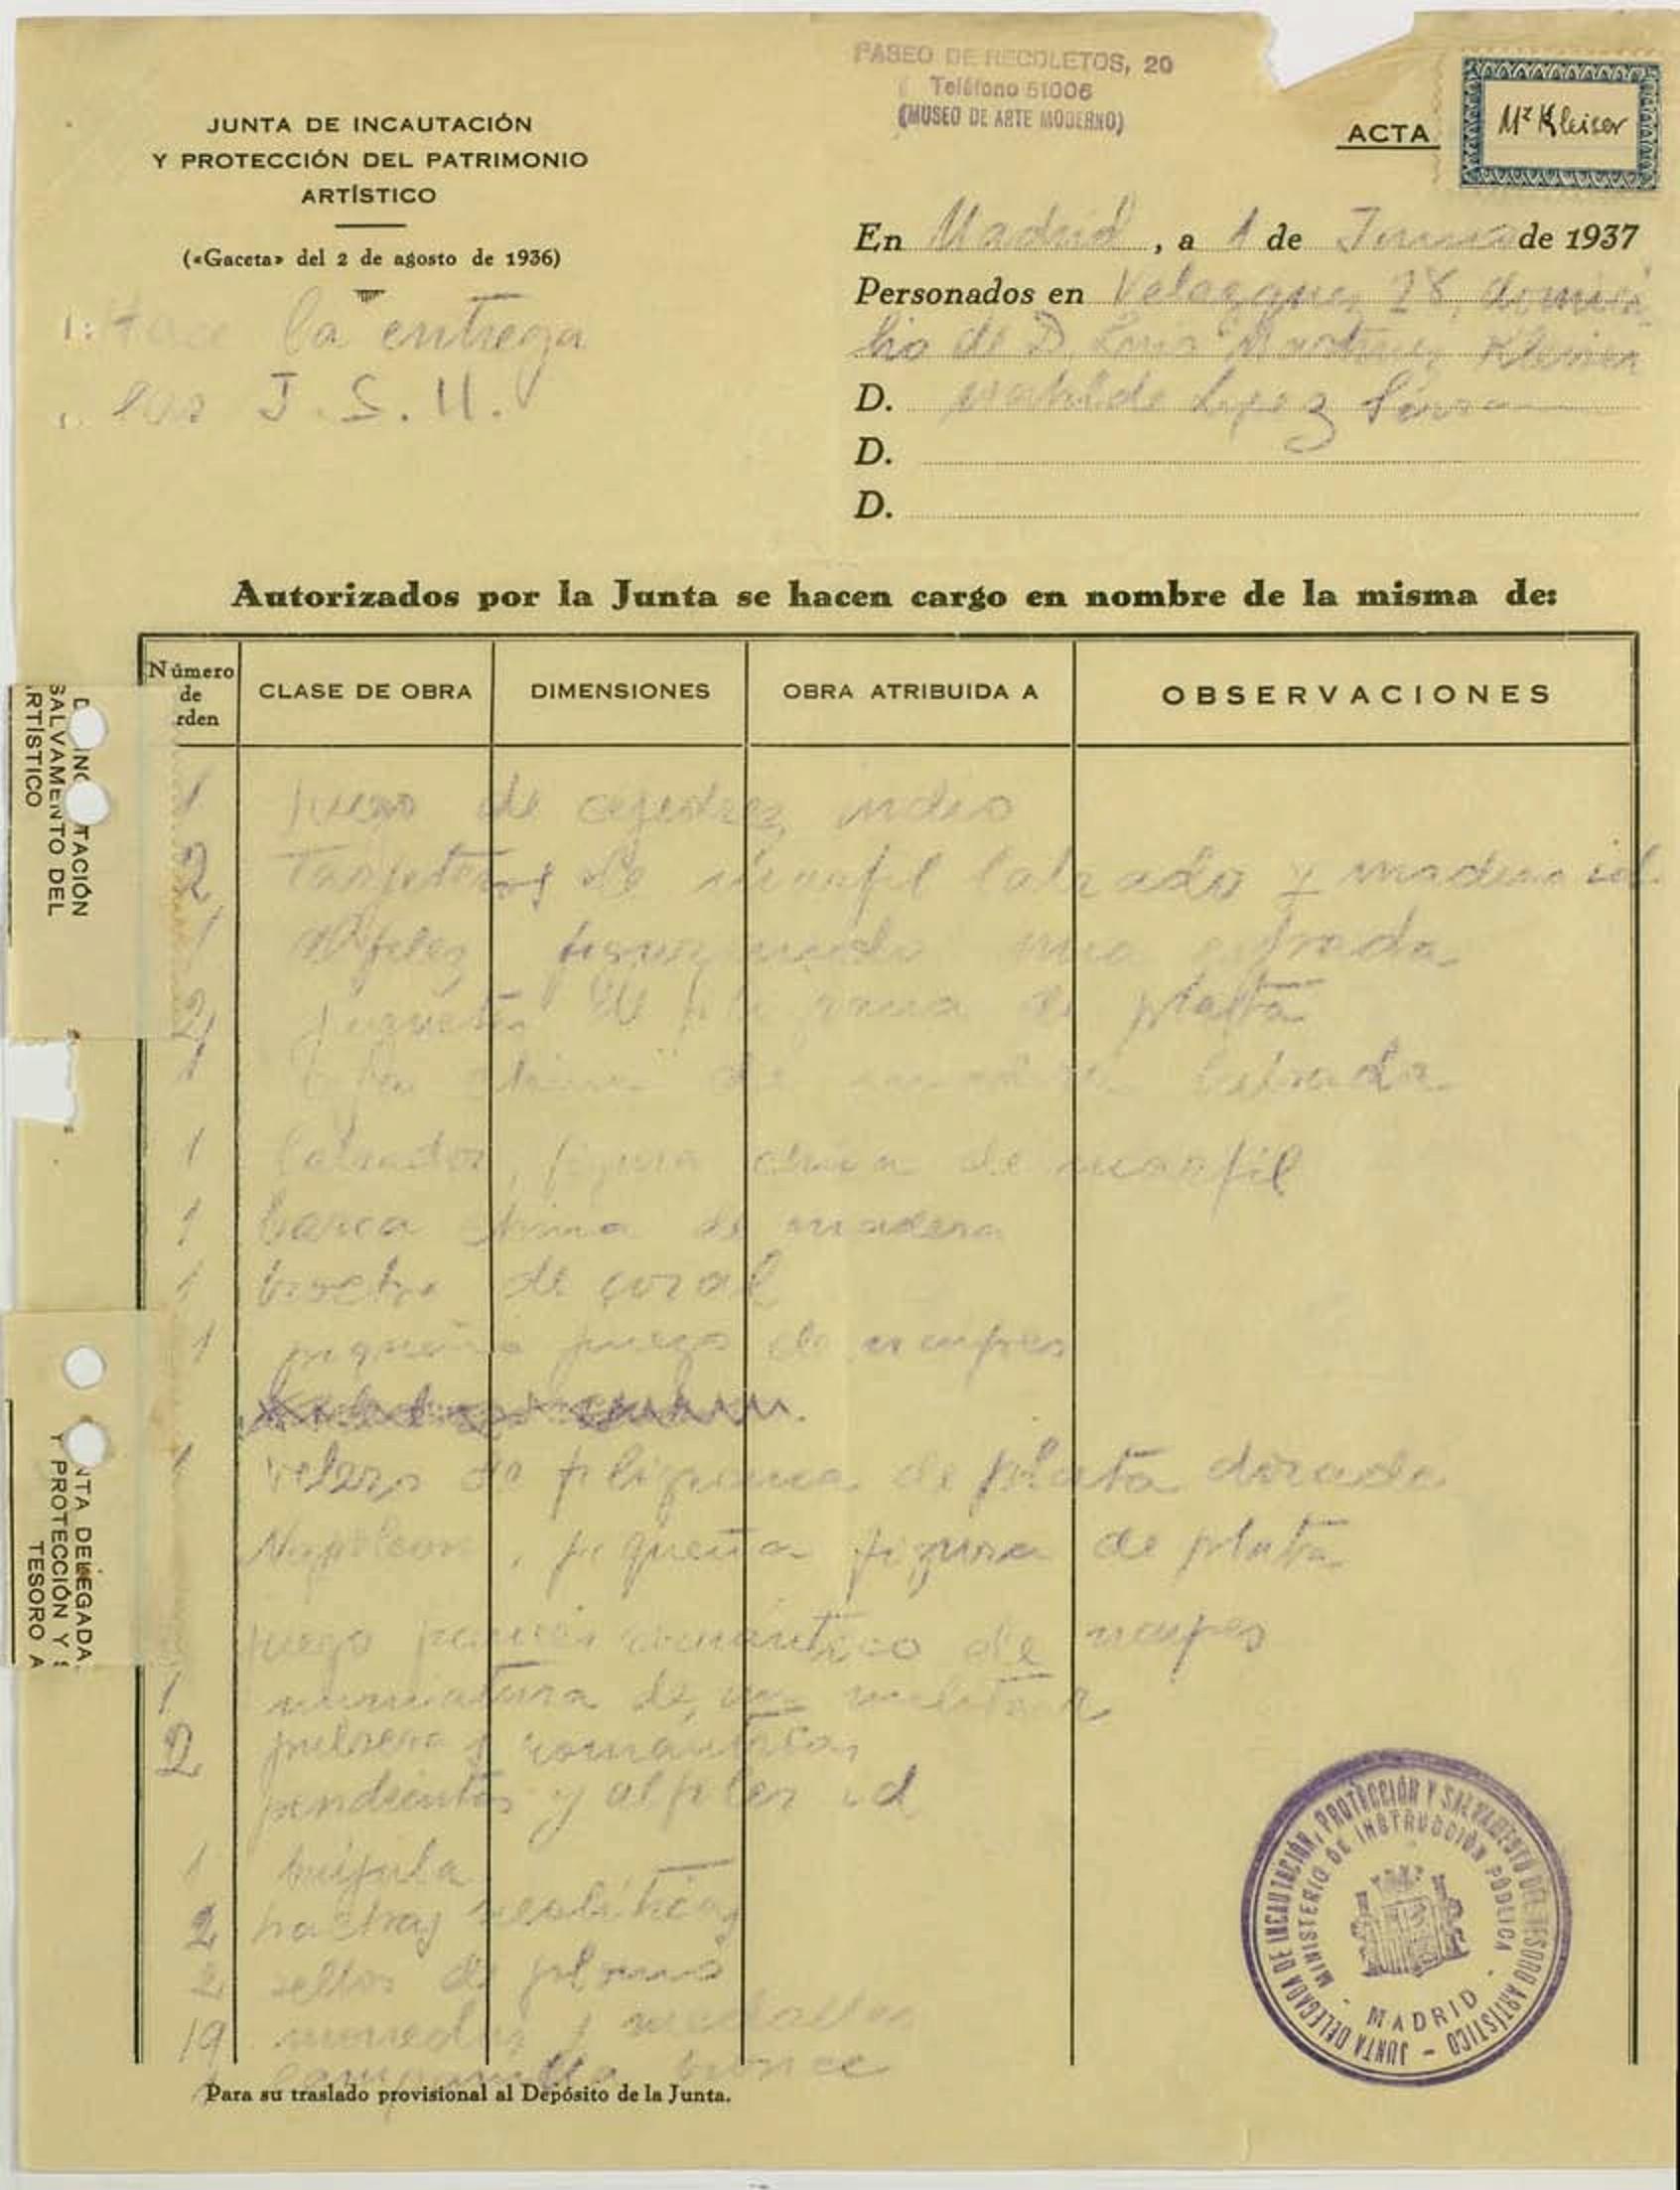 PASEO DE RECOLETOS, 20
Teléfono 51006
(MUSEO DE ARTE MODERNO)
JUNTA DE INCAUTACIÓN
Y PROTECCIÓN DEL PATRIMONIO
ARTÍSTICO
(«Gaceta» del 2 de agosto de 1936)
ACTA
Mz Kleiser
la entrega
J. S. U.
En Madrid, a 1 de Junio de 1937
Personados en Velazquez 28, domici
lio de D. Luis Martinez Kleiser
D. Matilde Lopez Serrano
D.
D.
Autorizados por la Junta se hacen cargo en nombre de la misma de:
Número
de
rden
CLASE DE OBRA
DIMENSIONES
OBRA ATRIBUIDA A
OBSERVACIONES
1 juego de ajedrez indio
2 Tarjeteros de marfil labrado y madera id.
1 alfiler una espada
2 juguetes de filigrana de plata
1 china de labrada
1 labrador, figura china de marfil
1 barca china de madera
1 broche de coral
1 pequeño juego de naipes
1 velero de filigrana de plata dorada
Napoleon, pequeña figura de plata
juego romántico de naipes
1 miniatura de un militar
2 pulseras románticas
pendientes y alfiler id
1 brújula
2 hachas neolíticas
2 sellos de plomo
19 monedas y medallas
1 campanilla bronce
Para su traslado provisional al Depósito de la Junta.
JUNTA DELEGADA DE INCAUTACIÓN, PROTECCIÓN Y SALVAMENTO DEL TESORO ARTÍSTICO
MINISTERIO DE INSTRUCCIÓN PÚBLICA
MADRID
TACIÓN
SALVAMENTO DEL
RTÍSTICO
NTA DELEGADA
Y PROTECCIÓN Y S
TESORO A